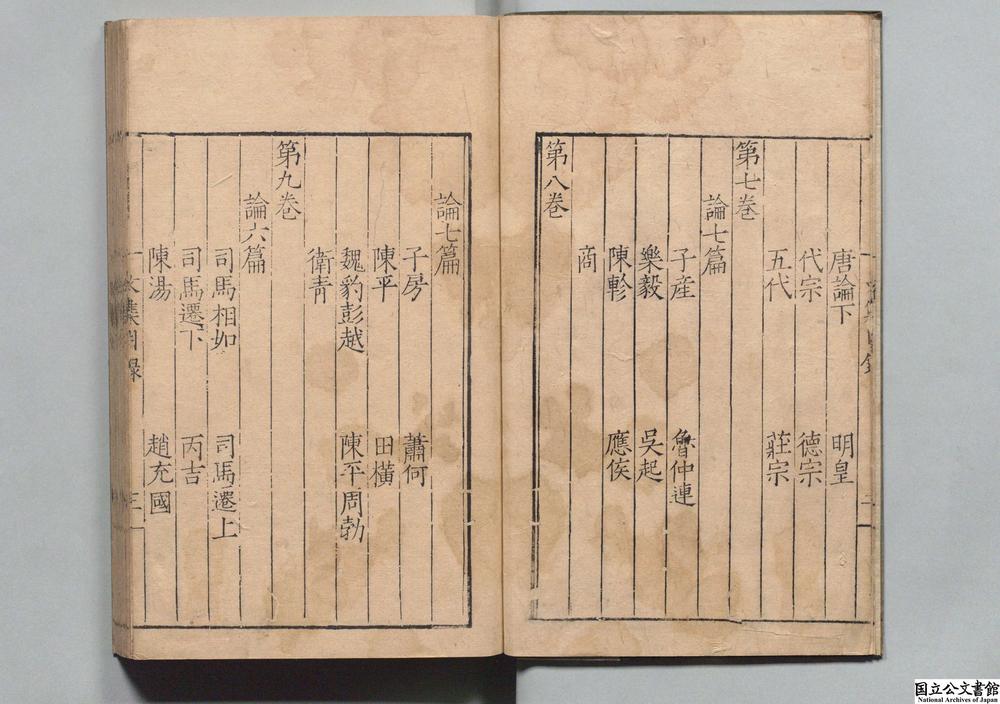 唐論下 明皇
代宗 德宗
五代 莊宗
第七卷
論七篇
子産 魯仲連
樂毅 吳起
陳軫 應侯
商
第八卷
論七篇
子房 蕭何
陳平 田橫
魏豹彭越 陳平周勃
衛青
第九卷
論六篇
司馬相如 司馬遷上
司馬遷下 丙吉
陳湯 趙充國
文集目錄
国立公文書館
National Archives of Japan